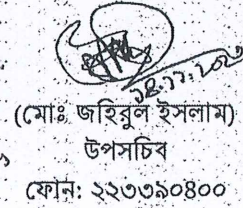 (মোঃ জহিরুল ইসলাম)
উপসচিব
ফোন: ২২৩৩৯০৪০০